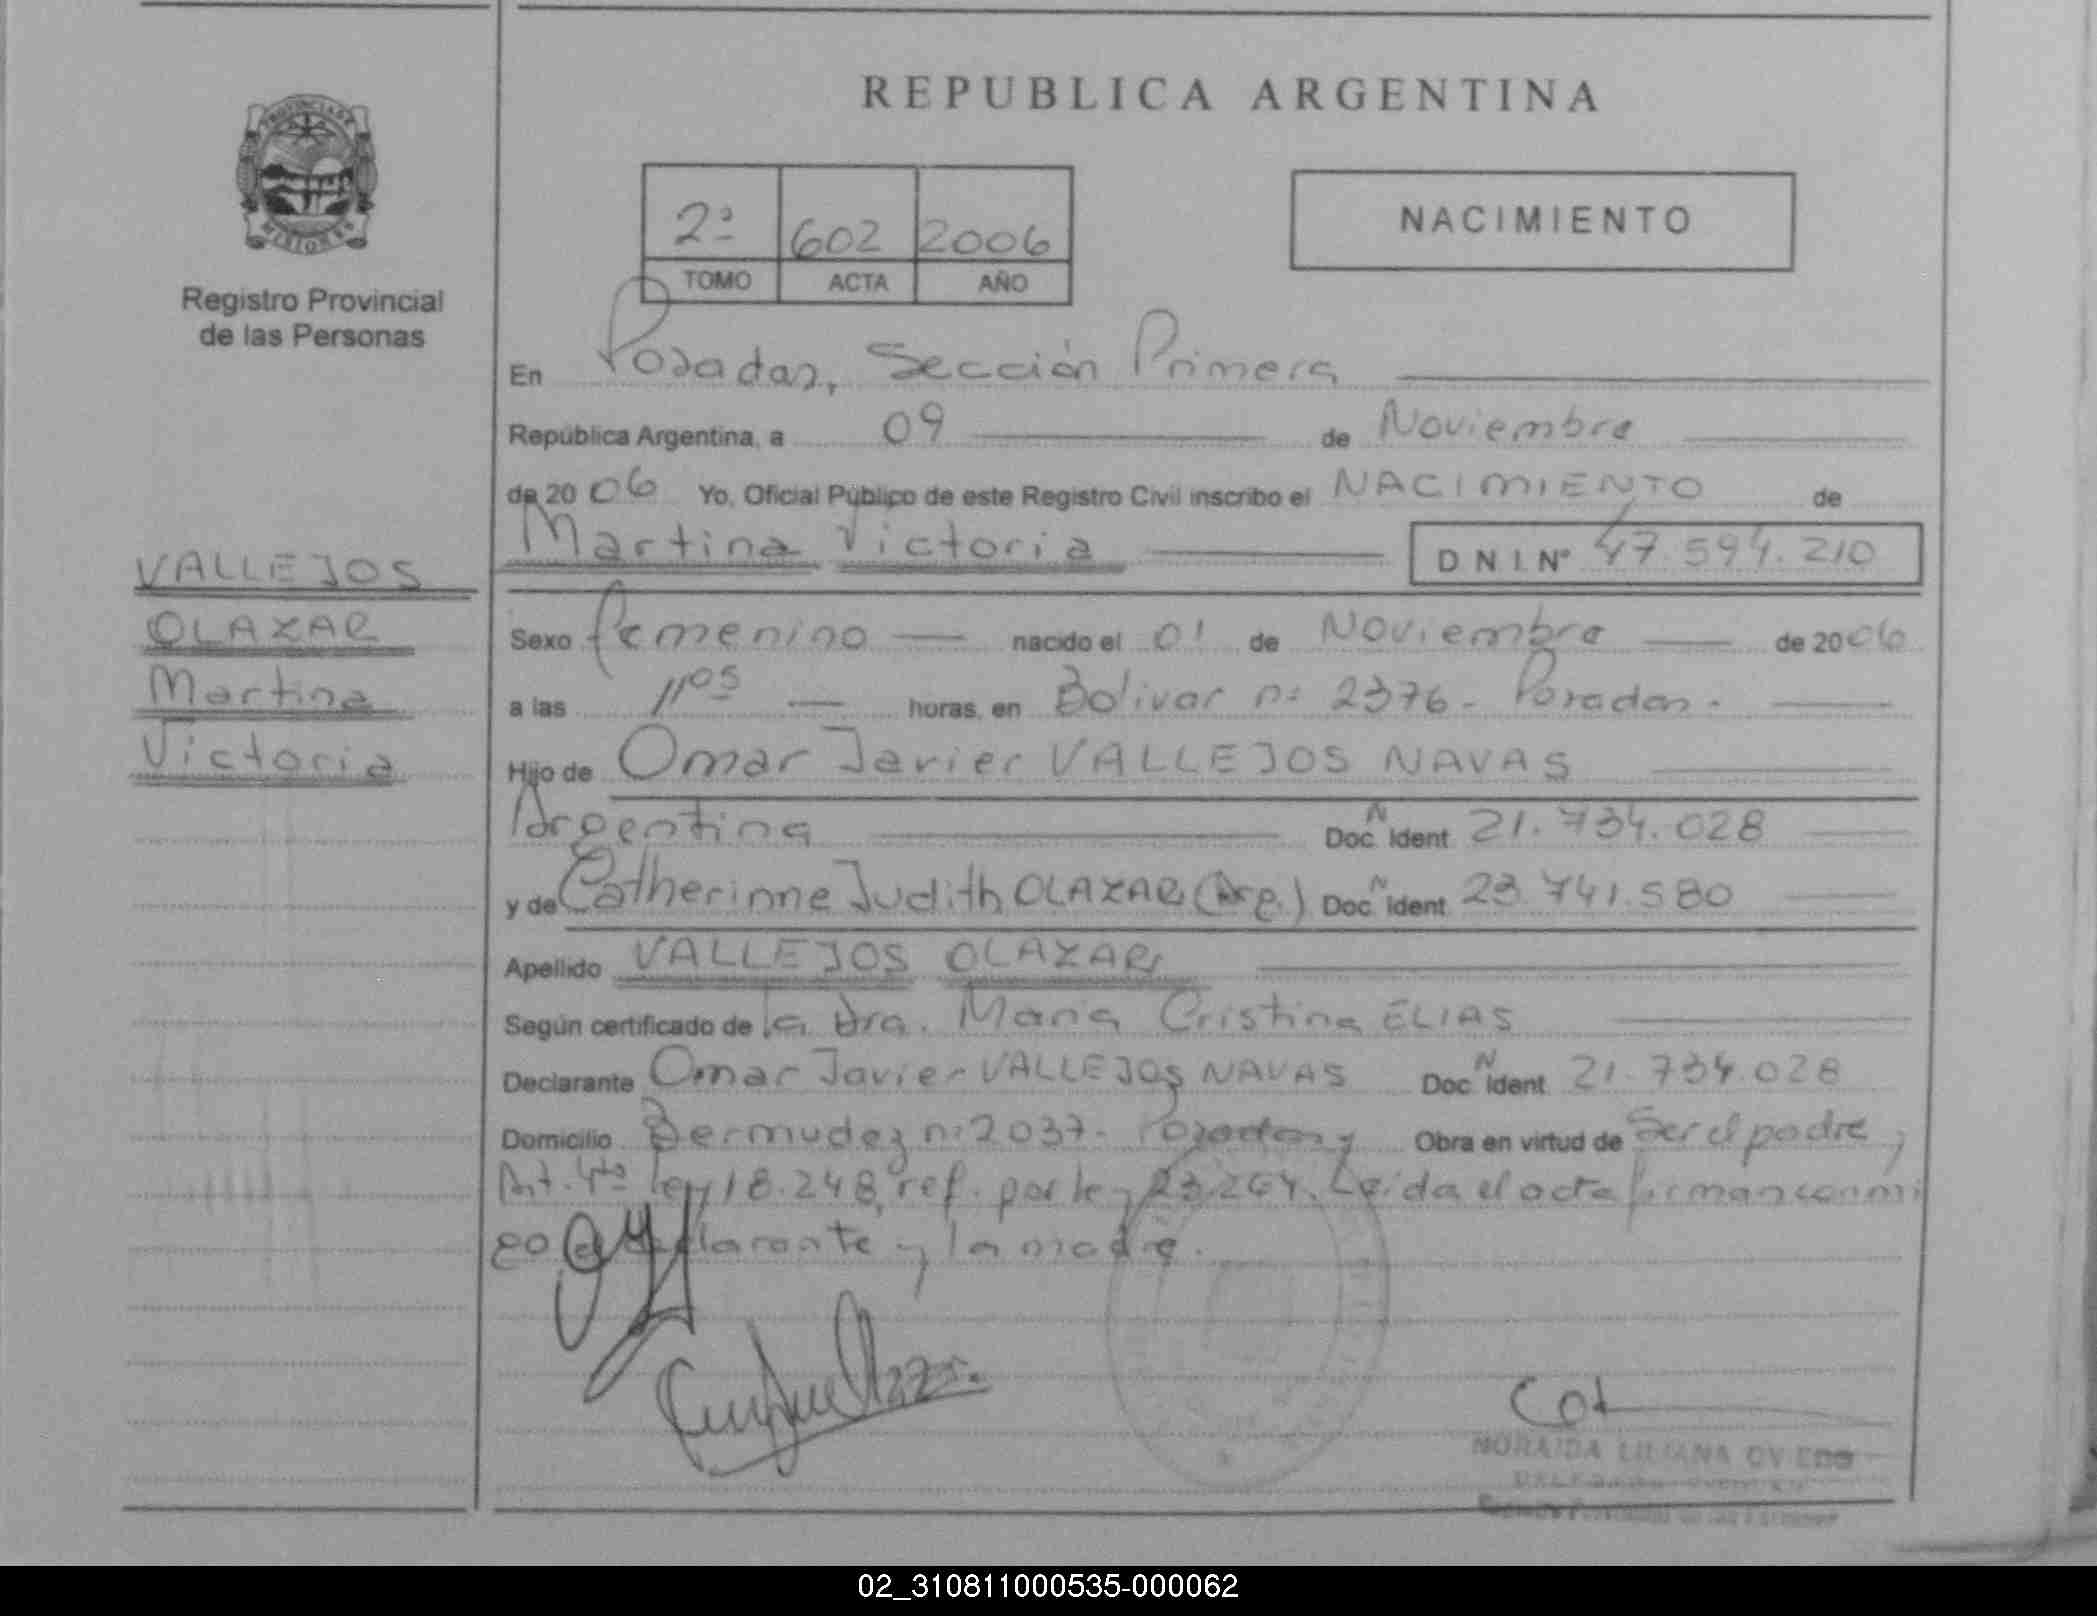 REPUBLICA ARGENTINA
PROVINCIA DE
MISIONES
Registro Provincial
de las Personas
2º 602 2006
TOMO ACTA AÑO
NACIMIENTO
En Posadas, Sección Primera
República Argentina, a 09 de Noviembre
de 20 06 Yo, Oficial Público de este Registro Civil inscribo el NACIMIENTO de
Martina Victoria DNI Nº 47.594.210
VALLEJOS
OLAZAR
Martina
Victoria
Sexo femenino nacido el 01 de Noviembre de 2006
a las 11 05 horas, en Bolivar nº 2376 - Posadas.
Hijo de Omar Javier VALLEJOS NAVAS
Argentina Doc. N Ident 21.734.028
y de Catherinne Judith OLAZAR (Arg.) Doc. N Ident 23.741.580
Apellido VALLEJOS OLAZAR
Según certificado de la Dra. Maria Cristina ELIAS
Declarante Omar Javier VALLEJOS NAVAS Doc. N Ident 21.734.028
Domicilio Bermudez nº 2037 - Posadas y Obra en virtud de Ser el padre,
Art. 4to ley 18.248, ref. por ley 23.264. Leida el acta firman conmi
go el declarante y la madre.
NORAIDA LILIANA OVIEDO
02_310811000535-000062